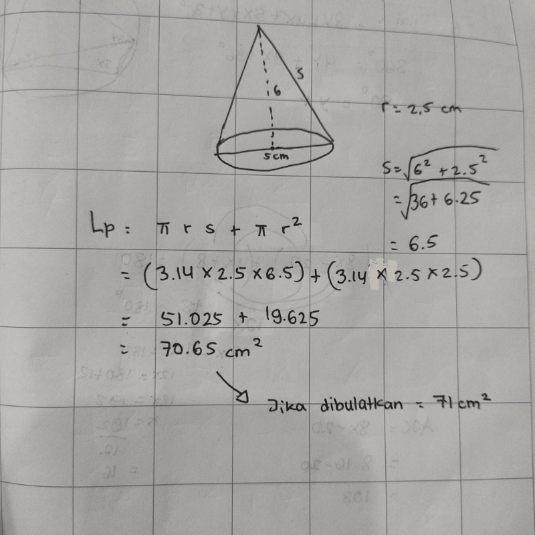 s
6
5cm
r = 2,5 cm
s = √6² + 2.5²
= √36 + 6.25
= 6.5
Lp = π r s + π r²
= (3.14 × 2.5 × 6.5) + (3.14 × 2.5 × 2.5)
= 51.025 + 19.625
= 70.65 cm²
Jika dibulatkan = 71 cm²